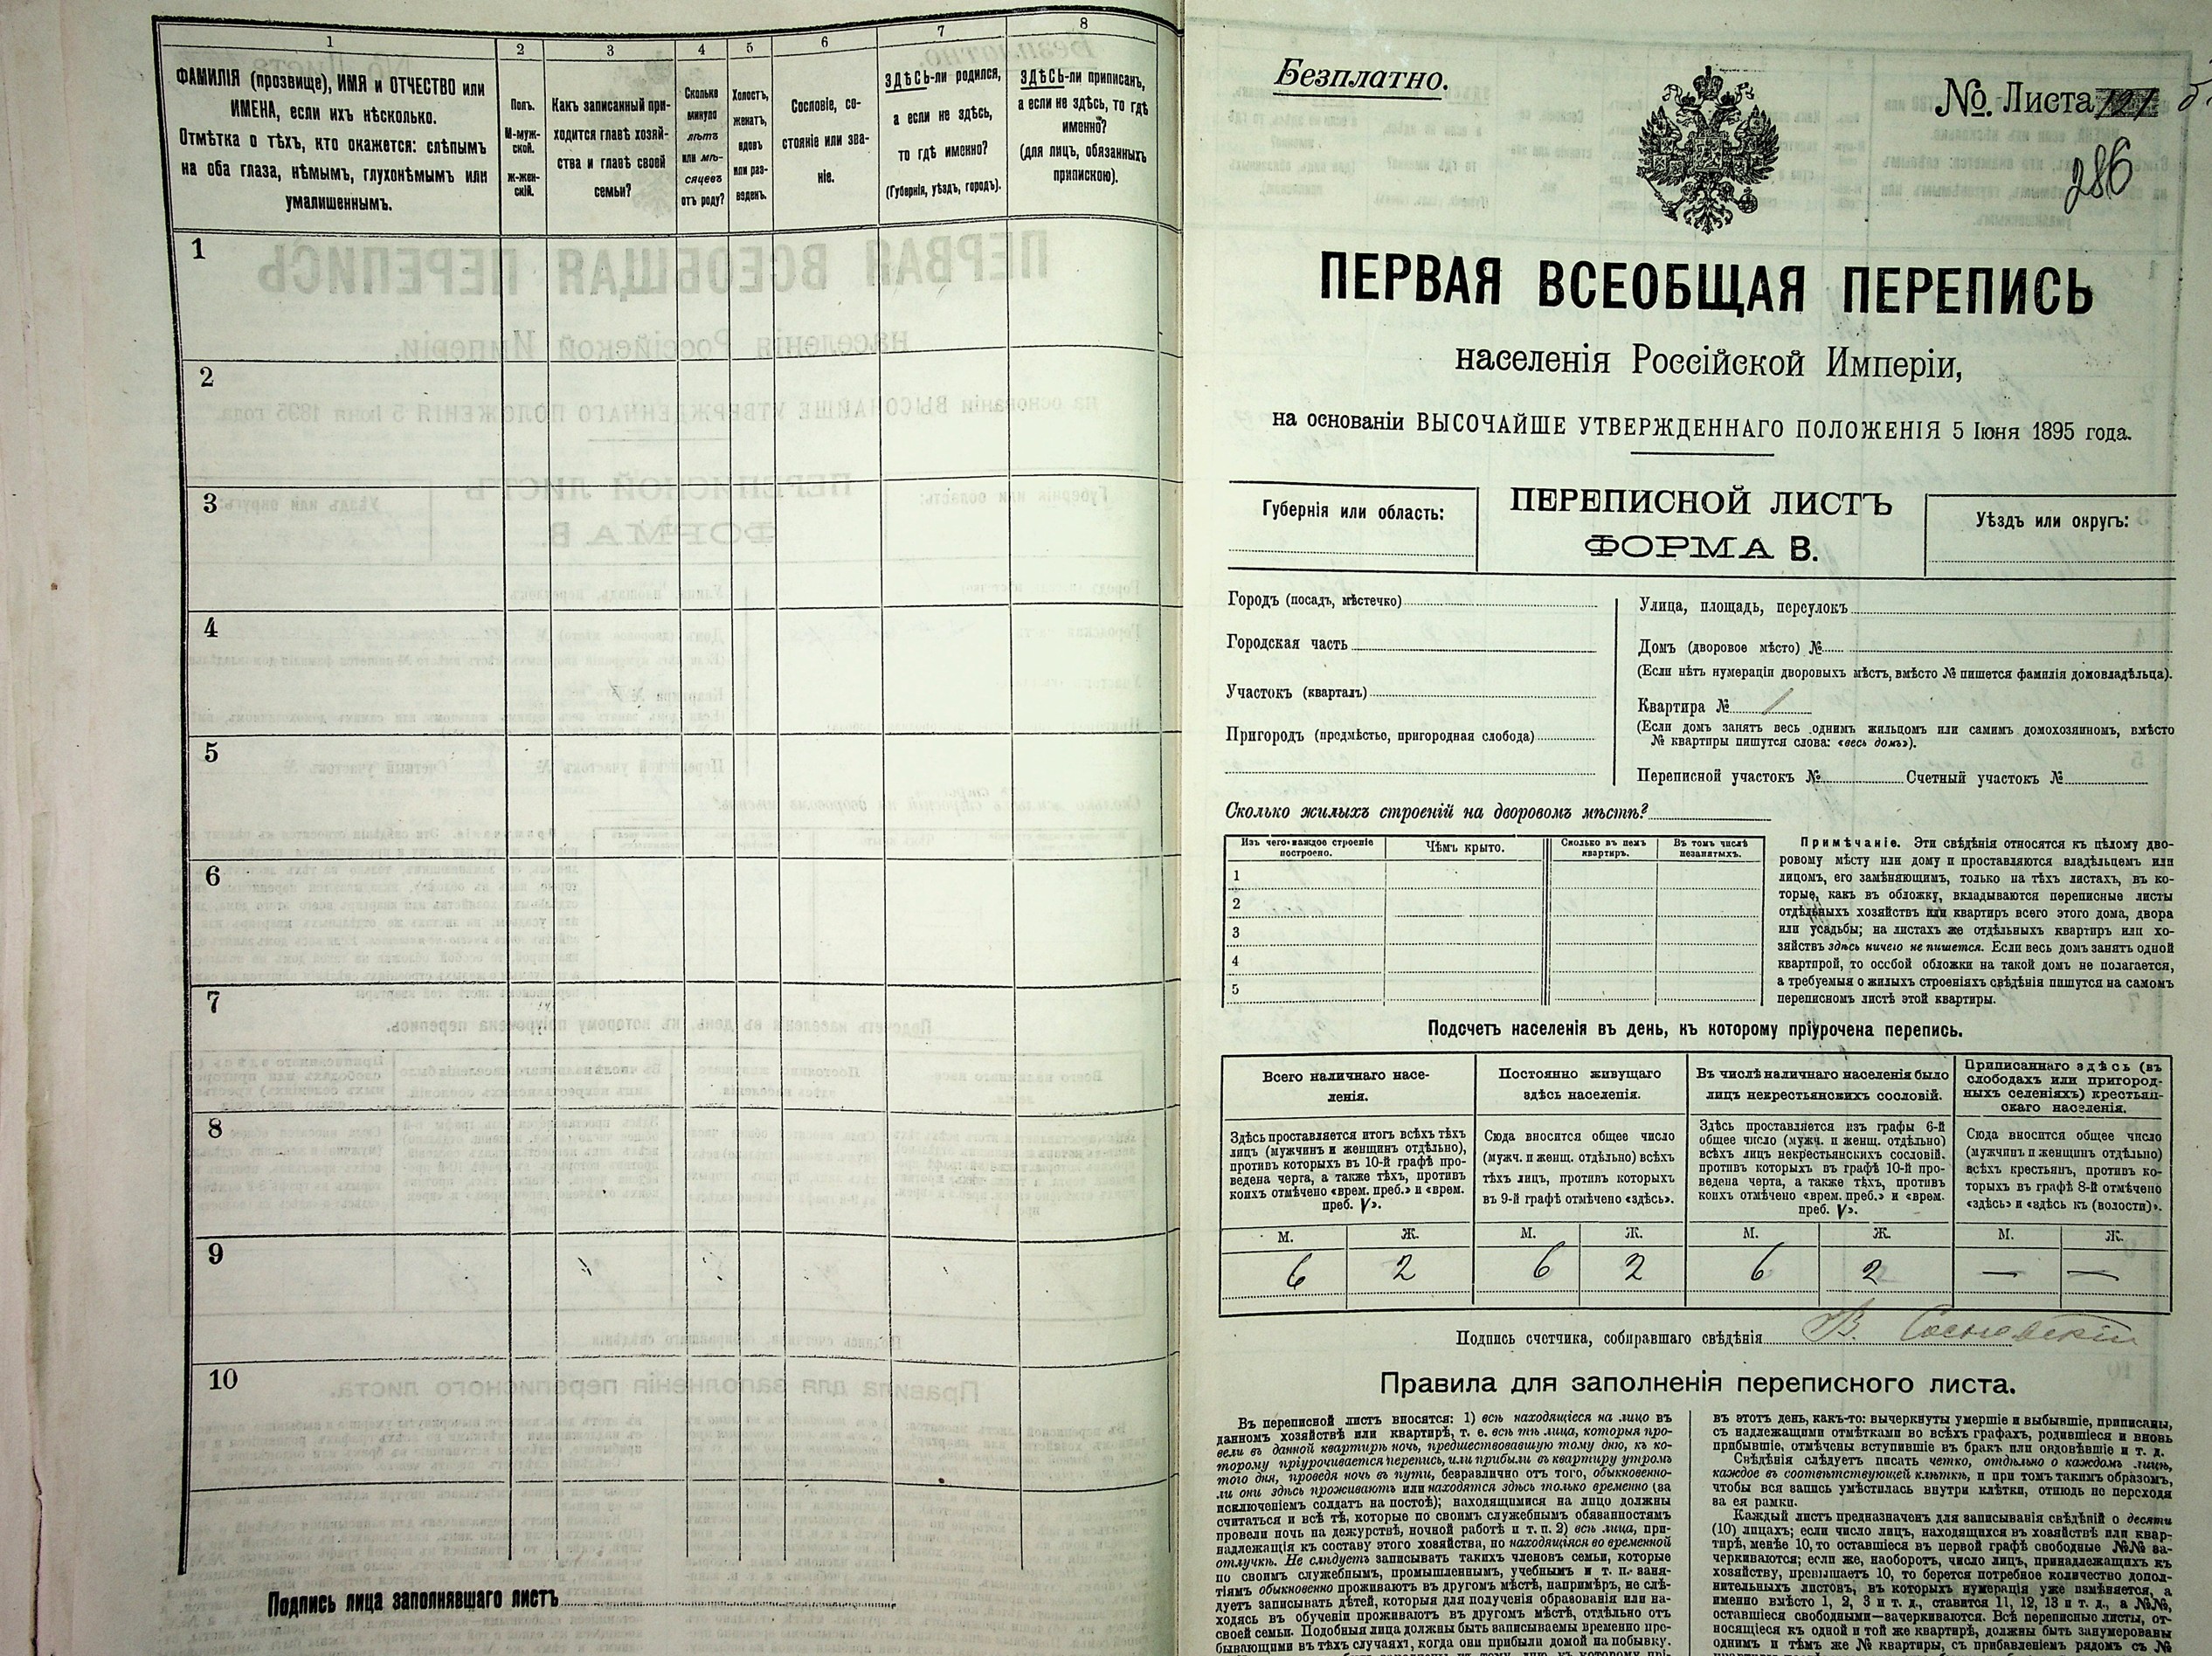 1 2 3 4 5 6 7 8
ФАМИЛІЯ (прозвище), ИМЯ и ОТЧЕСТВО или
ИМЕНА, если ихъ нѣсколько.
Отмѣтка о тѣхъ, кто окажется: слѣпымъ
на оба глаза, нѣмымъ, глухонѣмымъ или
умалишеннымъ.
Полъ.
М-муж-
ской.
ж-жен-
скій.
Какъ записанный при-
ходится главѣ хозяй-
ства и главѣ своей
семьи?
Сколько
минуло
лѣтъ
или мѣ-
сяцевъ
отъ роду?
Холостъ,
женатъ,
вдовъ
или раз-
веденъ.
Сословіе, со-
стояніе или зва-
ніе.
ЗДѢСЬ-ли родился,
а если не здѣсь,
то гдѣ именно?
(Губернія, уѣздъ, городъ).
ЗДѢСЬ-ли приписанъ,
а если не здѣсь, то гдѣ
именно?
(для лицъ, обязанныхъ
припискою).
1
2
3
4
5
6
7
8
9
10
Подпись лица заполнявшаго листъ
Безплатно.
№ Листа
286
ПЕРВАЯ ВСЕОБЩАЯ ПЕРЕПИСЬ
населенія Россійской Имперіи,
на основаніи ВЫСОЧАЙШЕ УТВЕРЖДЕННАГО ПОЛОЖЕНІЯ 5 Іюня 1895 года.
Губернія или область:
ПЕРЕПИСНОЙ ЛИСТЪ
ФОРМА В.
Уѣздъ или округъ:
Городъ (посадъ, мѣстечко)
Городская часть
Участокъ (кварталъ)
Пригородъ (предмѣстье, пригородная слобода)
Улица, площадь, переулокъ
Домъ (дворовое мѣсто) №
(Если нѣтъ нумераціи дворовыхъ мѣстъ, вмѣсто № пишется фамилія домовладѣльца).
Квартира № 1
(Если домъ занятъ весь однимъ жильцомъ или самимъ домохозяиномъ, вмѣсто
№ квартиры пишутся слова: «весь домъ»).
Переписной участокъ № Счетный участокъ №
Сколько жилыхъ строеній на дворовомъ мѣстѣ?
Изъ чего каждое строеніе
построено.
Чѣмъ крыто.
Сколько въ немъ
квартиръ.
Въ томъ числѣ
незанятыхъ.
1
2
3
4
5
Примѣчаніе. Эти свѣдѣнія относятся къ цѣлому дво-
ровому мѣсту или дому и проставляются владѣльцемъ или
лицомъ, его замѣняющимъ, только на тѣхъ листахъ, въ ко-
торые, какъ въ обложку, вкладываются переписные листы
отдѣльныхъ хозяйствъ или квартиръ всего этого дома, двора
или усадьбы; на листахъ же отдѣльныхъ квартиръ или хо-
зяйствъ здѣсь ничего не пишется. Если весь домъ занятъ одной
квартирой, то особой обложки на такой домъ не полагается,
а требуемыя о жилыхъ строеніяхъ свѣдѣнія пишутся на самомъ
переписномъ листѣ этой квартиры.
Подсчетъ населенія въ день, къ которому пріурочена перепись.
Всего наличнаго насе-
ленія.
Постоянно живущаго
здѣсь населенія.
Въ числѣ наличнаго населенія было
лицъ некрестьянскихъ сословій.
Приписаннаго здѣсь (въ
слободахъ или пригород-
ныхъ селеніяхъ) крестьян-
скаго населенія.
Здѣсь проставляется итогъ всѣхъ тѣхъ
лицъ (мужчинъ и женщинъ отдѣльно),
противъ которыхъ въ 10-й графѣ про-
ведена черта, а также тѣхъ, противъ
коихъ отмѣчено «врем. преб.» и «врем.
преб. V».
Сюда вносится общее число
(мужч. и женщ. отдѣльно) всѣхъ
тѣхъ лицъ, противъ которыхъ
въ 9-й графѣ отмѣчено «здѣсь».
Здѣсь проставляется изъ графы 6-й
общее число (мужч. и женщ. отдѣльно)
всѣхъ лицъ некрестьянскихъ сословій.
противъ которыхъ въ графѣ 10-й про-
ведена черта, а также тѣхъ, противъ
коихъ отмѣчено «врем. преб.» и «врем.
преб. V».
Сюда вносится общее число
(мужчинъ и женщинъ отдѣльно)
всѣхъ крестьянъ, противъ ко-
торыхъ въ графѣ 8-й отмѣчено
«здѣсь» и «здѣсь къ (волости)».
М. Ж. М. Ж. М. Ж. М. Ж.
6 2 6 2 6 2 — —
Подпись счетчика, собиравшаго свѣдѣнія В. Сосновскій
Правила для заполненія переписного листа.
Въ переписной листъ вносятся: 1) всѣ находящіеся на лицо въ
данномъ хозяйствѣ или квартирѣ, т. е. всѣ тѣ лица, которыя про-
вели въ данной квартирѣ ночь, предшествовавшую тому дню, къ ко-
торому пріурочивается перепись, или прибыли въ квартиру утромъ
того дня, проведя ночь въ пути, безразлично отъ того, обыкновенно-
ли они здѣсь проживаютъ или находятся здѣсь только временно (за
исключеніемъ солдатъ на постоѣ); находящимися на лицо должны
считаться и всѣ тѣ, которые по своимъ служебнымъ обязанностямъ
провели ночь на дежурствѣ, ночной работѣ и т. п. 2) всѣ лица, при-
надлежащія къ составу этого хозяйства, но находящіяся во временной
отлучкѣ. Не слѣдуетъ записывать такихъ членовъ семьи, которые
по своимъ служебнымъ, промышленнымъ, учебнымъ и т. п. заня-
тіямъ обыкновенно проживаютъ въ другомъ мѣстѣ, напримѣръ, не слѣ-
дуетъ записывать дѣтей, которыя для полученія образованія или на-
ходясь въ обученіи проживаютъ въ другомъ мѣстѣ, отдѣльно отъ
своей семьи. Подобныя лица должны быть записываемы временно пре-
бывающими въ тѣхъ случаяхъ, когда они прибыли домой на побывку.
въ этотъ день, какъ-то: вычеркнуты умершіе и выбывшіе, приписаны,
съ надлежащими отмѣтками во всѣхъ графахъ, родившіеся и вновь
прибывшіе, отмѣчены вступившіе въ бракъ или овдовѣвшіе и т. д.
Свѣдѣнія слѣдуетъ писать четко, отдѣльно о каждомъ лицѣ,
каждое въ соотвѣтствующей клѣткѣ, и при томъ такимъ образомъ,
чтобы вся запись умѣстилась внутри клѣтки, отнюдь не переходя
за ея рамки.
Каждый листъ предназначенъ для записыванія свѣдѣній о десяти
(10) лицахъ; если число лицъ, находящихся въ хозяйствѣ или квар-
тирѣ, менѣе 10, то оставшіеся въ первой графѣ свободные №№ за-
черкиваются; если же, наоборотъ, число лицъ, принадлежащихъ къ
хозяйству, превышаетъ 10, то берется потребное количество допол-
нительныхъ листовъ, въ которыхъ нумерація уже измѣняется, а
именно вмѣсто 1, 2, 3 и т. д., ставится 11, 12, 13 и т. д., а №№,
оставшіеся свободными—зачеркиваются. Всѣ переписные листы, от-
носящіеся къ одной и той же квартирѣ, должны быть занумерованы
однимъ и тѣмъ же № квартиры, съ прибавленіемъ рядомъ съ №